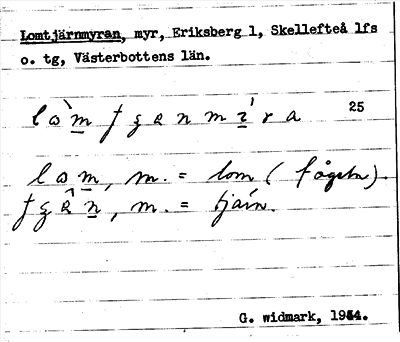 Lomtjärnmyran, myr, Eriksberg 1, Skellefteå lfs
o. tg, Västerbottens län.
25
m. = lom ( fågeln).
m. = tjärn.
G. widmark, 1944.